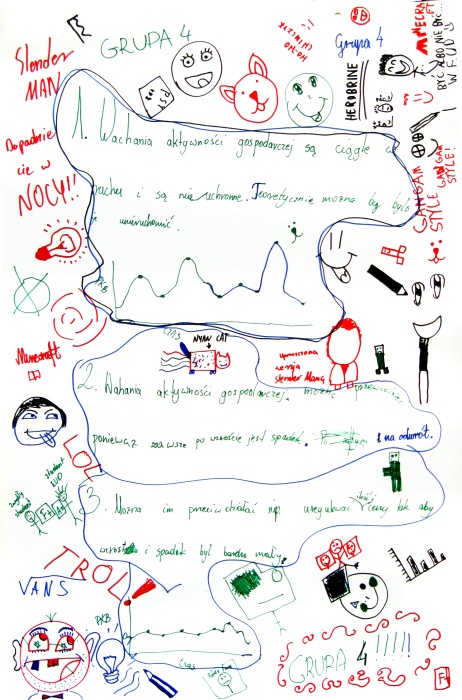 GRUPA 4
Grupa 4
Slender
MAN
Dopadnie
cię w
NOCY!!
HEROBRINE
BYĆ ALBO NIE BYĆ...
GANGAM
STYLE
GANGAM
STYLE!
1. Wachania aktywności gospodarczej są ciągle w
ruchu i są nieuchronne. Teoretycznie można by było
je unieruchomić.
PKB
czas
NYAN CAT
uproszczona
wersja
slender Mana
Minecraft
2. Wahania aktywności gospodarczej, można przewidzieć,
ponieważ zawsze po wzroście jest spadek, i na odwrót.
LOL
3. Można im przeciwdziałać np. uregulować ilość i ceny tak aby
wzrost i spadek był bardzo mały.
TROL
VANS
PKB
czas
GRUPA 4 !!!!!